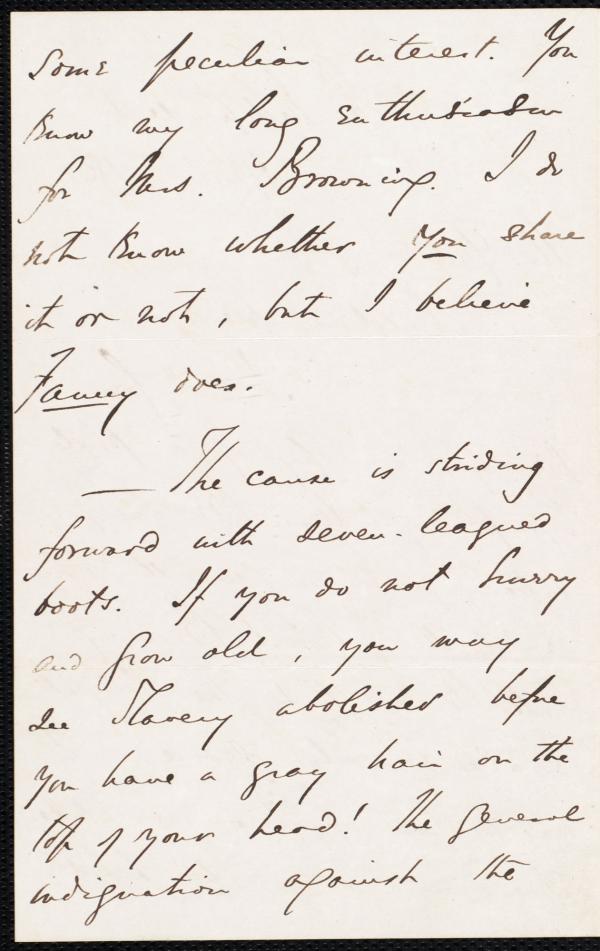 some peculiar interest. You
know my long enthusiasm
for Mrs. Browning. I do
not know whether you share
it or not, but I believe
Fanny does.
— The cause is striding
forward with seven-leagued
boots. If you do not hurry
and grow old, you may
see Slavery abolished before
you have a gray hair on the
top of your head! The general
indignation against the